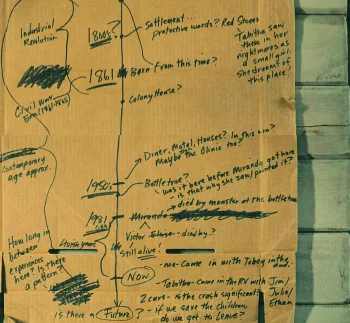 Industrial
Revolution
1800s?
Settlement...
protective words? Red Stones
Tabitha saw
these in her
nightmares as
a small girl.
she dreamt of
this place!
1861
Born from this time?
Civil War
Era (1861-1865)
Colony House?
Diner, Motel, Houses? In this era?
Maybe the Clinic too?
contemporary
age approx.
1950s
Bottletree?
was it here before Miranda got here
- is that why she saw/painted it?
→ died by monster at the bottletree
1981
Miranda
Victor
-died by?
Still alive!
How long in
between
experiences
here? Is there
a pattern?
Now
-me-Came in with Tobey in the
-Tabitha-Came in the RV with Jim/
Julie/
Ethan
2 cars - is the crash significant?
is there a Future?
- if we save the children
do we get to leave?